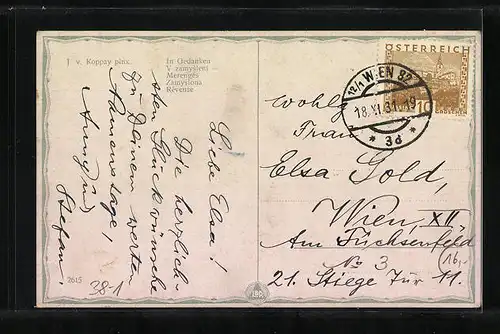 J. v. Koppay pinx.
In Gedanken
V zamyšlení
Merengés
Zamyślona
Rêveuse
Liebe Elsa!
Die herzlich-
sten Glückwünsche
zu Deinem werten
Namenstage,
Stefan.
2615
38-1
ÖSTERREICH
10
GROSCHEN
12/1 WIEN 82
18.XI.31.19
* 3d *
Wohlg.
Frau
Elsa Gold,
Wien, XII,
Am Fuchsenfeld
No 3
16.-
21. Stiege Tür 11.